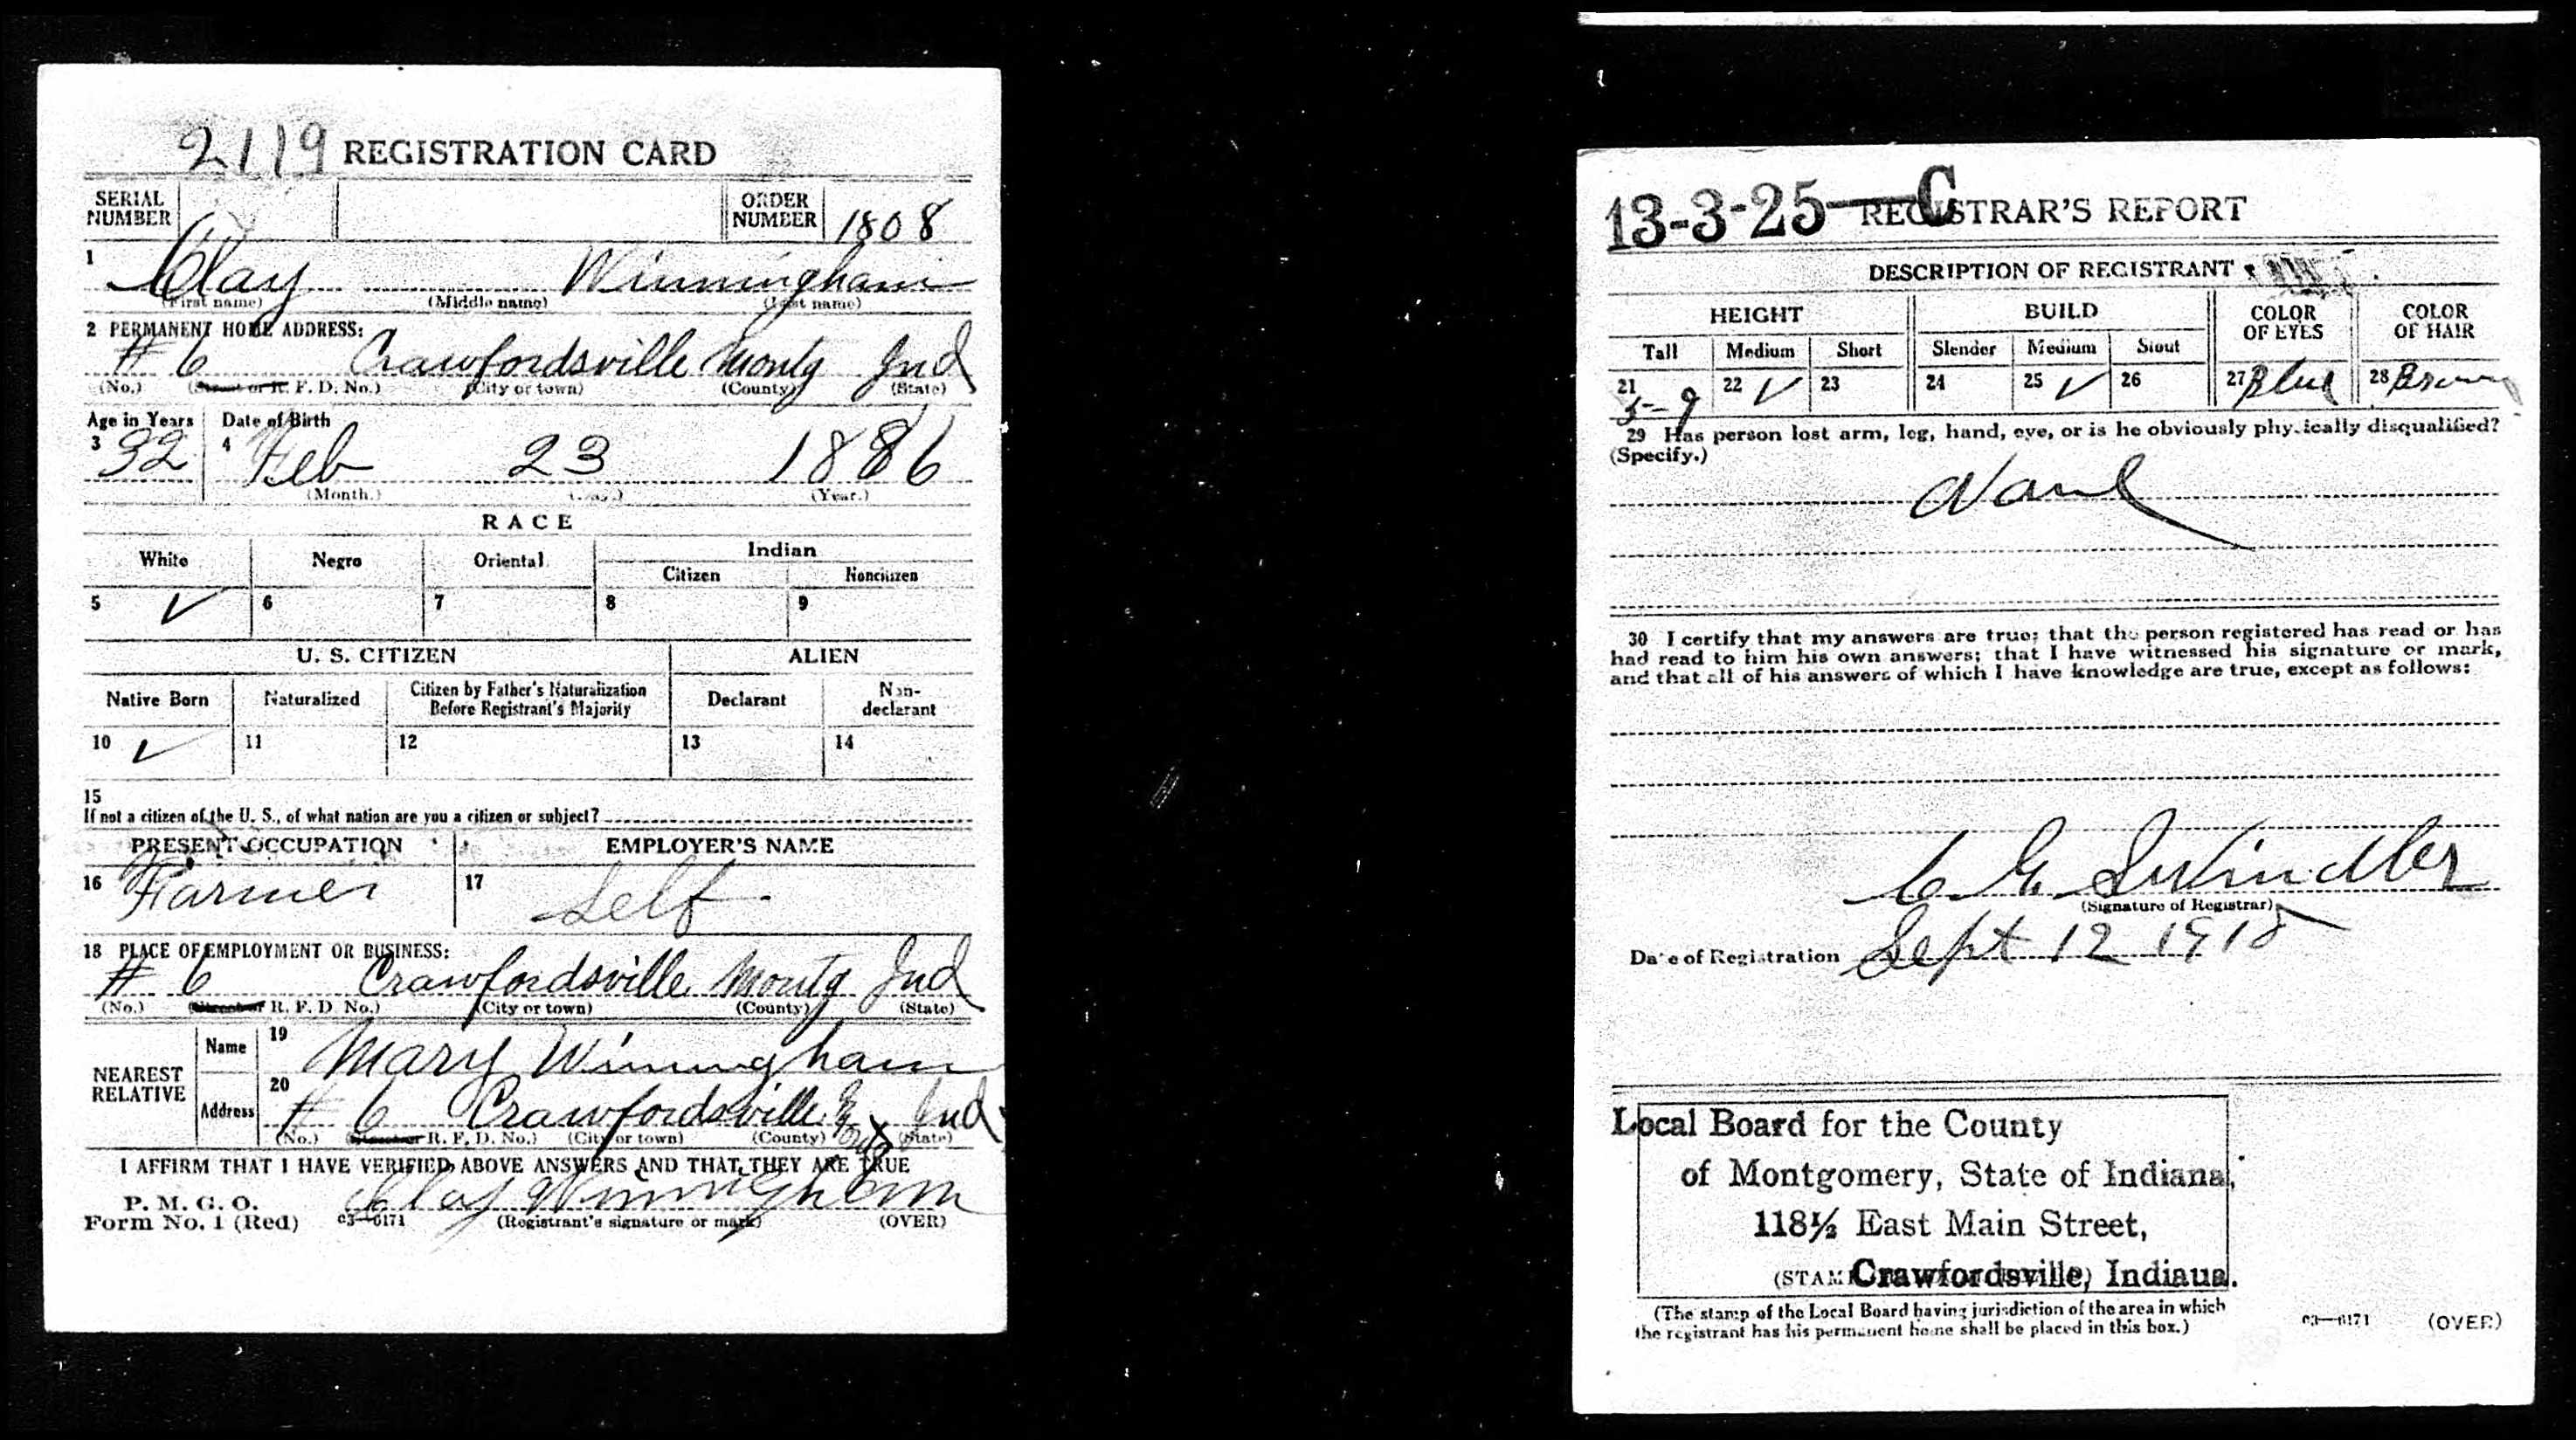 2119 REGISTRATION CARD
SERIAL NUMBER
ORDER NUMBER 1808
1 Clay Winningham
(First name) (Middle name) (Last name)
2 PERMANENT HOME ADDRESS:
# 6 Crawfordsville Montg Ind
(No.) (Street or R. F. D. No.) (City or town) (County) (State)
Age in Years Date of Birth
3 32 4 Feb 23 1886
(Month.) (Day.) (Year.)
RACE
White Negro Oriental Indian
Citizen Noncitizen
5 ✓ 6 7 8 9
U. S. CITIZEN ALIEN
Native Born Naturalized Citizen by Father's Naturalization Before Registrant's Majority Declarant Non-declarant
10 ✓ 11 12 13 14
15
If not a citizen of the U. S., of what nation are you a citizen or subject?
PRESENT OCCUPATION EMPLOYER'S NAME
16 Farmer 17 Self
18 PLACE OF EMPLOYMENT OR BUSINESS:
# 6 Crawfordsville Montg Ind
(No.) (Street or R. F. D. No.) (City or town) (County) (State)
NEAREST RELATIVE
Name 19 Mary Winningham
Address 20 # 6 Crawfordsville Ind
(No.) (Street or R. F. D. No.) (City or town) (County) (State)
I AFFIRM THAT I HAVE VERIFIED ABOVE ANSWERS AND THAT THEY ARE TRUE
P. M. G. O.
Form No. 1 (Red) 03—6171 Clay Winningham
(Registrant's signature or mark) (OVER)
13-3-25—C REGISTRAR'S REPORT
DESCRIPTION OF REGISTRANT
HEIGHT BUILD COLOR OF EYES COLOR OF HAIR
Tall Medium Short Slender Medium Stout
21 5-9 22 ✓ 23 24 25 ✓ 26 27 Blue 28 Brown
29 Has person lost arm, leg, hand, eye, or is he obviously physically disqualified?
(Specify.)
None
30 I certify that my answers are true; that the person registered has read or has
had read to him his own answers; that I have witnessed his signature or mark,
and that all of his answers of which I have knowledge are true, except as follows:
C E Swindler
(Signature of Registrar)
Date of Registration Sept 12 1918
Local Board for the County
of Montgomery, State of Indiana,
118½ East Main Street,
Crawfordsville, Indiana.
(The stamp of the Local Board having jurisdiction of the area in which
the registrant has his permanent home shall be placed in this box.)
03—6171 (OVER)